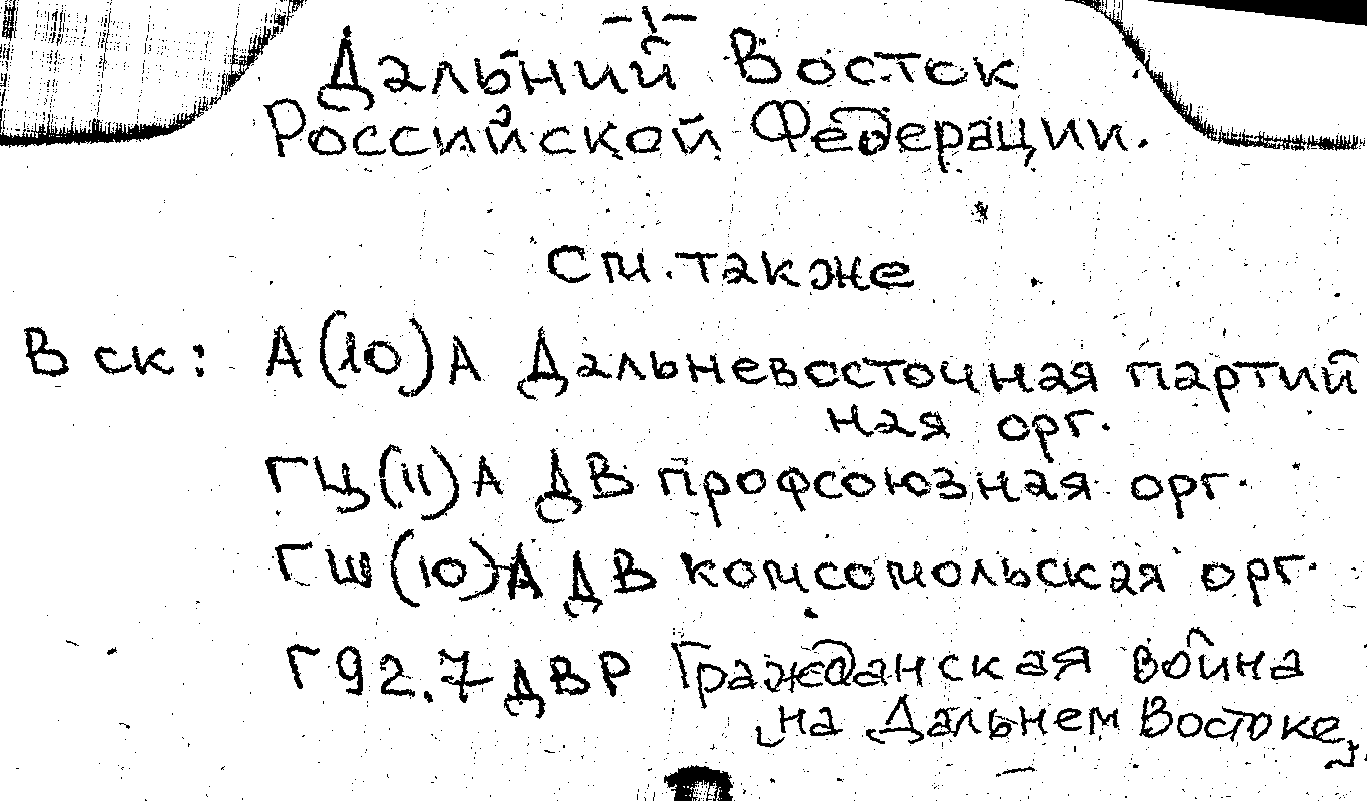 -1-
Дальний Восток
Российской Федерации.
См. также
В ск: А(10)А Дальневосточная партий
ная орг.
ГЦ(11)А ДВ профсоюзная орг.
ГШ(10)А ДВ комсомольская орг.
Г92.7 ДВР Гражданская война
на Дальнем Востоке,